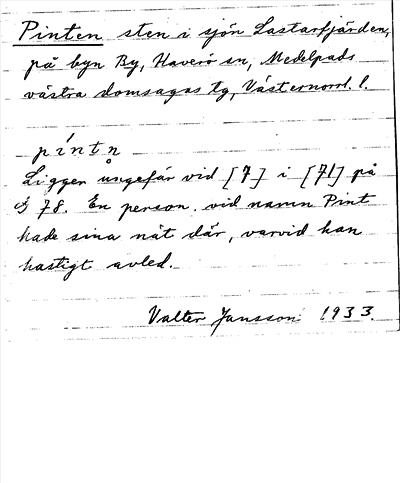 Pinten sten i sjön Lastarfjärden,
på byn By, Haverö sn, Medelpads
västra domsagas tg, Västernorrl. l.
píntn̥
Ligger ungefär vid [7] i [71] på
78. En person vid namn Pint
hade sina nät där, varvid han
hastigt avled.
Valter Jansson 1933.